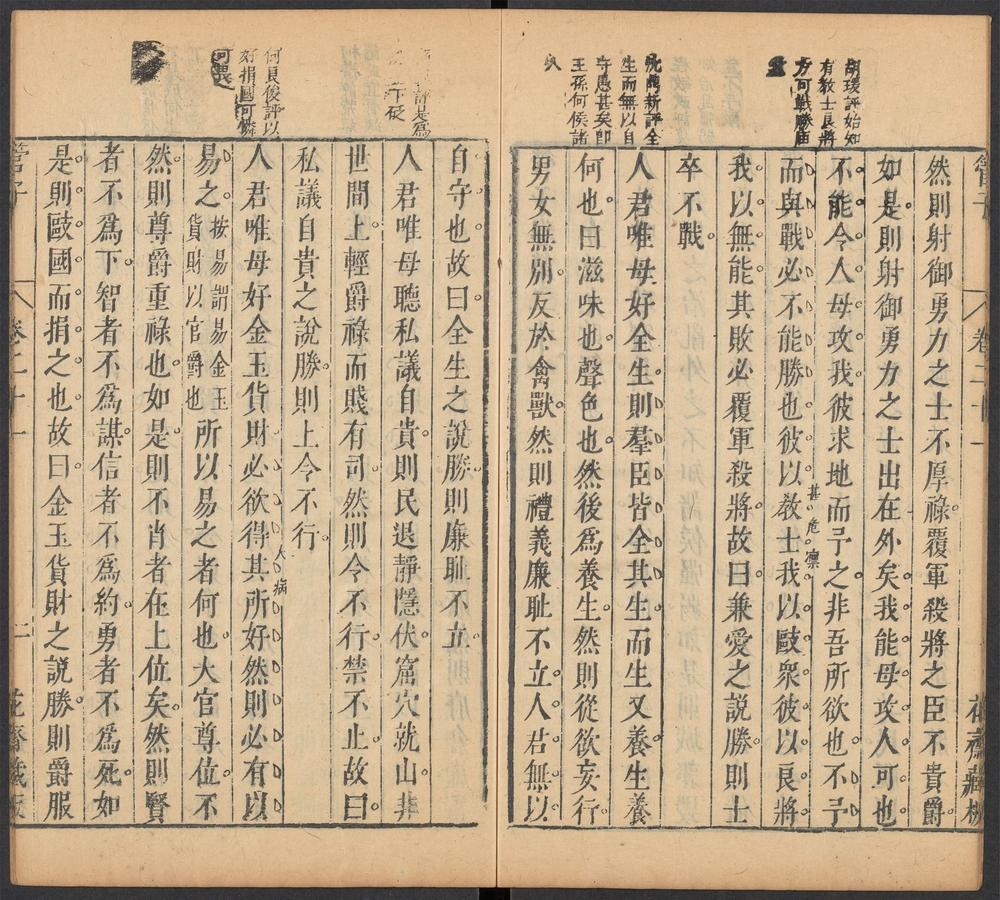 管子
卷二十一
花齋藏板
然則射御勇力之士不厚祿覆軍殺將之臣不貴爵
如是則射御勇力之士出在外矣我能毋攻人可也
不能令人毋攻我彼求地而予之非吾所欲也不予
而與戰必不能勝也彼以教士我以敺衆彼以良將
甚危凛
我以無能其敗必覆軍殺將故曰兼愛之説勝則士
卒不戰
人君唯毋好全生則羣臣皆全其生而生又養生養
何也曰滋味也聲色也然後爲養生然則從欲妄行
男女無別反於禽獸然則禮義廉耻不立人君無以
胡瑗評始知
有教士良將
方可戰勝
沈鼎新評全
生而無以自
守愚甚矣卽
王孫何侯諸
人
自守也故曰全生之說勝則廉耻不立
人君唯毋聽私議自貴則民退靜隱伏窟穴就山非
世間上輕爵祿而賤有司然則令不行禁不止故曰
私議自貴之說勝則上令不行
人君唯毋好金玉貨財必欲得其所好然則必有以
大病
易之按易謂易金玉貨財以官爵也所以易之者何也大官尊位不
然則尊爵重祿也如是則不肖者在上位矣然則賢
者不爲下智者不爲謀信者不爲約勇者不爲死如
是則敺國而捐之也故曰金玉貨財之説勝則爵服
評是爲
何良俊評以
好捐國可憐
可畏
管子
卷二十一
二
花齋藏板